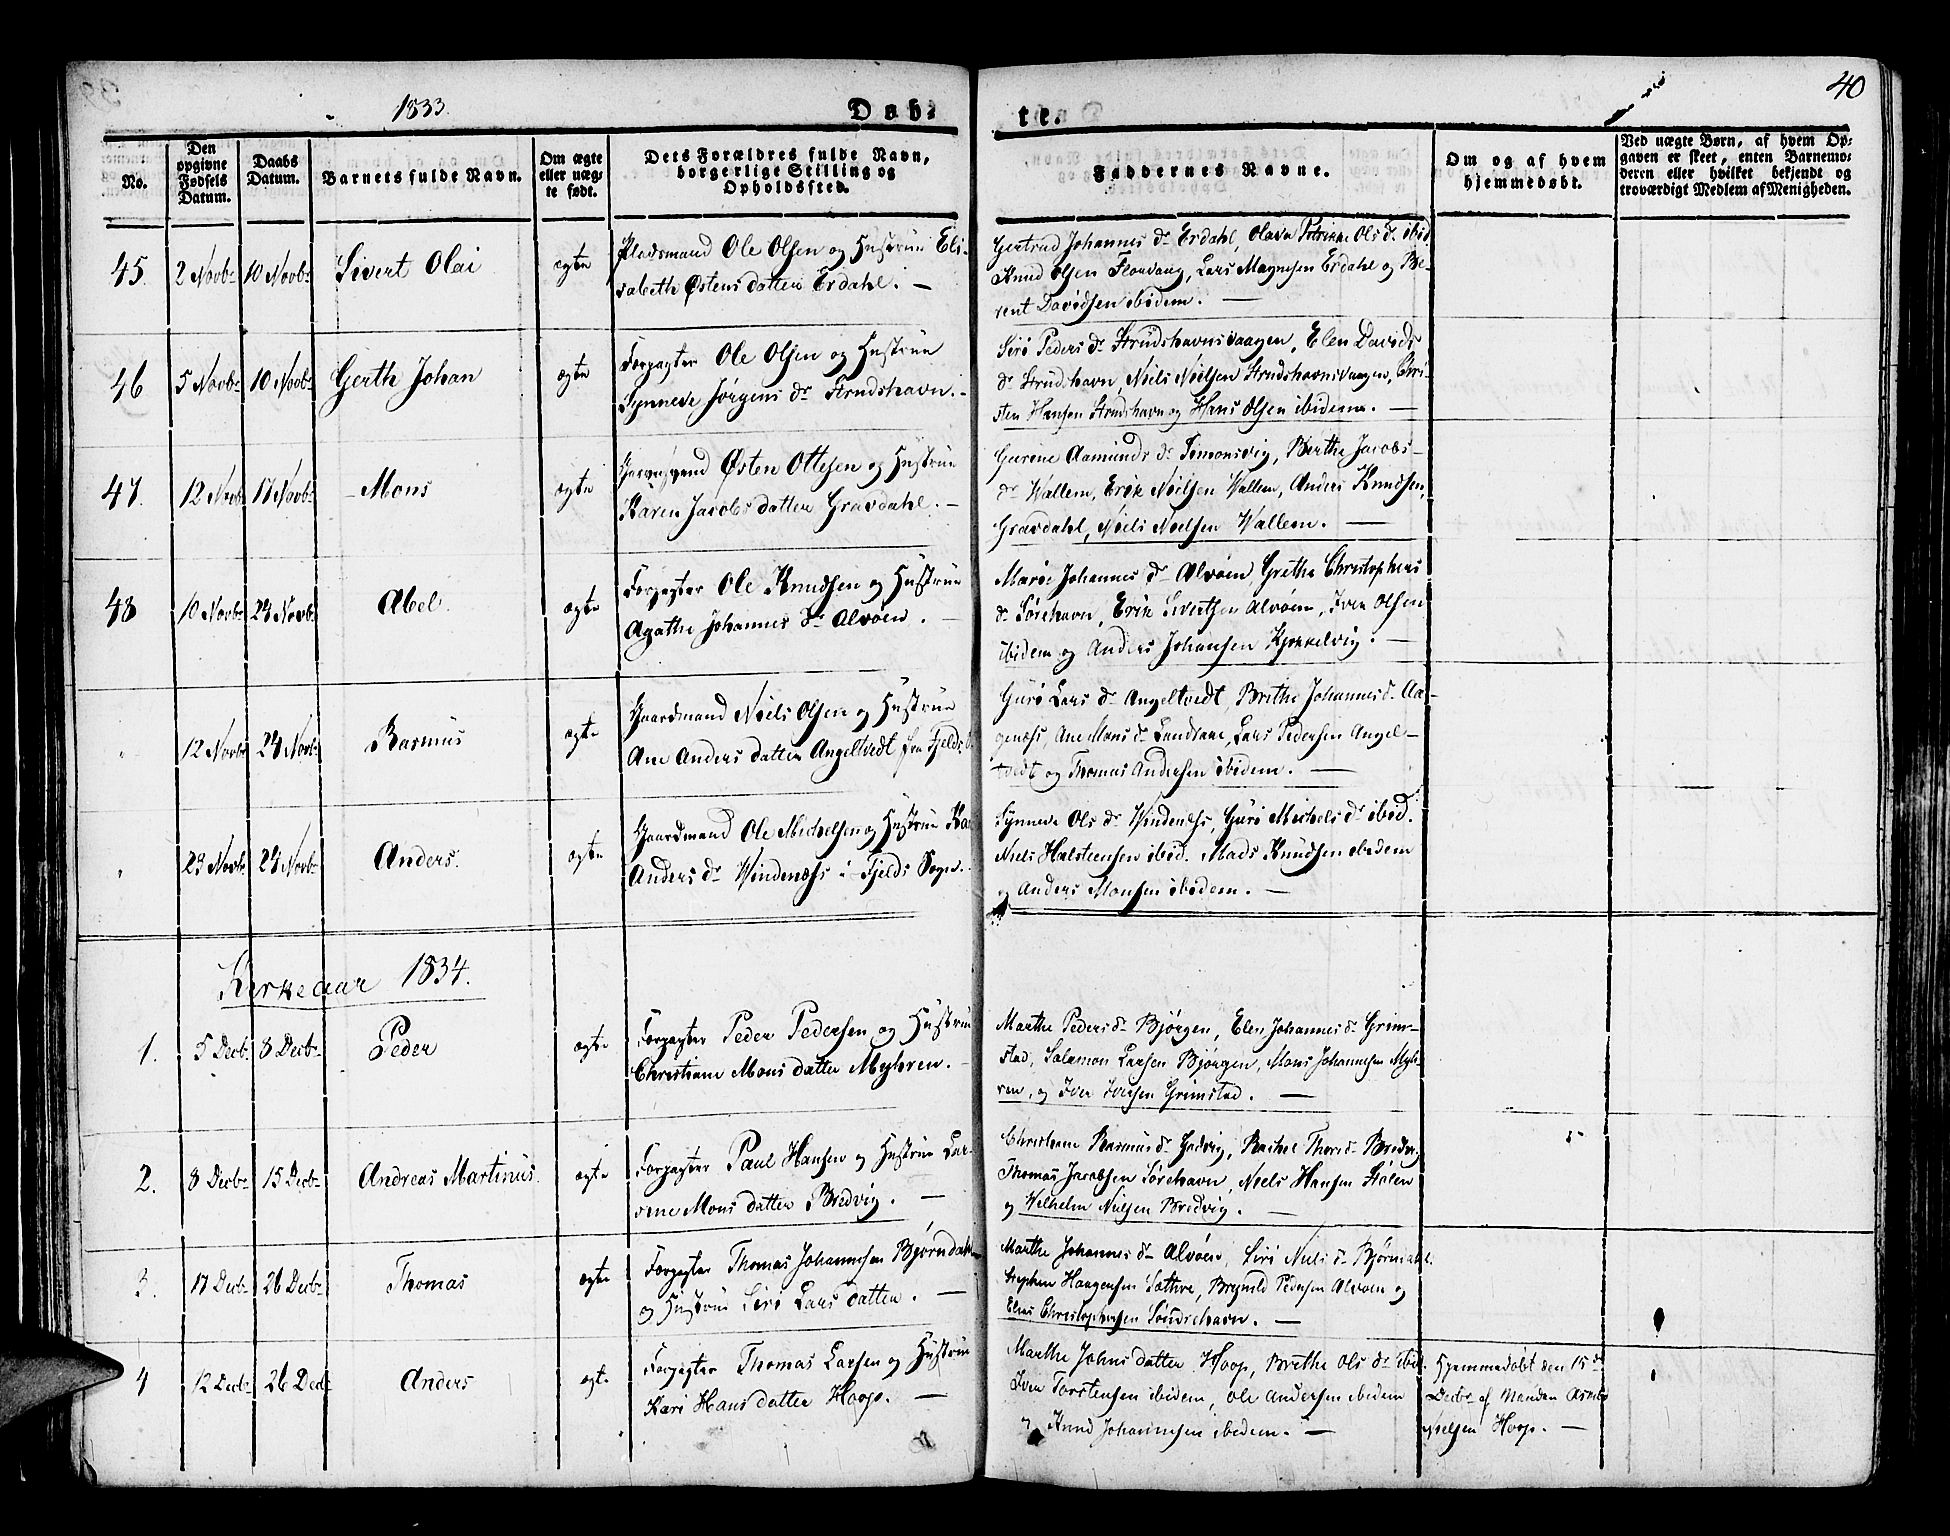 1833.
Døb-
te.
40
No.
Den opgivne Fødsels Datum.
Daabs Datum.
Barnets fulde Navn.
Om ægte eller uæg-te født.
Dets Forældres fulde Navn, borgerlige Stilling og Opholdssted.
Faddernes Navne.
Om og af hvem hjemmedøbt.
Ved uægte Børn, af hvem Op-gaven er skeet, enten Barnemo-deren eller hvilket bekjendt og troværdigt Medlem af Menigheden.
45. 2 Novbr 10 Novbr Sivert Olai ægte Pladsmand Ole Olsen og Hustrue Eli-
sabeth Østens datter Erdahl. —
Gertrud Johannes dr Erdahl, Olava Ols dr ibid
Knud Olsen Florvaag, Lars Magnesen Erdahl og Be-
rent Davidsen ibidem. —
46 5 Novbr 10 Novbr Gerth Johan ægte Forpagter Ole Olsen og Hustrue
Synneve Jørgens dr Strudshavn. -
Siri Peders dr Strudshavnsvaagen, Elen Davids
dr Strudshavn, Niels Nielsen Strudshavnsvaagen, Chri-
sten Hansen Strudshavn og Hans Olsen ibidem. —
47. 12 Novbr 17 Novbr Mons ægte Østen Ottesen og Hustrue
Karen Jacobs datter Gravdahl. —
Gurine Aamunds dr Simonsvig, Berthe Jacobs-
dr Wallem, Erik Nielsen Wallem, Anders Knudsen,
Gravdahl, Niels Nielsen Wallem. —
48 10 Novbr 24 Novbr Abel. ægte Forpagter Ole Knudsen og Hustrue
Agathe Johannes dr Alvøen. —
Mari Johannes dr Alvøen, Grethe Christophers
dr Sørehavn, Erik Sivertsen Alvøen, Iver Olsen
ibidem og Anders Johansen Kjøkkelvig. —
" 12 Novbr 24 Novbr Rasmus ægte Gaardmand Niels Olsen og Hustrue
Ane Anders datter Angeltvedt fra Fjelds S.
Guri Lars dr Angeltvedt, Brithe Johannes dr Aa-
genæss, Ane Mons dr Landsane, Lars Pedersen Angel-
tvedt og Thomas Andersen ibidem. —
" 23 Novbr 24 Novbr Anders. ægte Gaardmand Ole Michelsen og Hustrue Kari
Anders dr Windenæss i Fjelds Sogn.
Synneve Ols dr Windenæss, Guri Michels dr ibid.
Niels Halsteensen ibid. Mads Knudsen ibidem
og Anders Monsen ibidem. —
Kirkeaar 1834.
1. 5 Decbr 8 Decbr Peder ægte Forpagter Peder Pedersen og Hustrue
Christiane Mons datter Myhren. -
Marthe Peders dr Bjørgen, Elen Johannes dr Grim-
stad, Salamon Larsen Bjørgen, Mons Johannesen Myh-
ren, og Iver Iversen Grimstad. —
2. 8 Decbr 15 Decbr Andreas Martinus. ægte Forpagter Paul Hansen og Hustrue Lar-
sine Mons datter Bredvig. —
Christiane Rasmus dr Godvig, Rachel Thors dr Bredvig
Thomas Jacobsen Sørehavn, Niels Hansen Stølen
og Wilhelm Nielsen Bredvig. —
3. 17 Decbr 26 Decbr Thomas ægte Forpagter Thomas Johannesen Bjørndahl
og Hustrue Siri Lars datter. —
Marthe Johannes dr Alvøen, Siri Niels dr Bjørndahl.
Stephen Haagensen Sæthre, Brynild Pedersen Alvøen og
Elias Christophersen Søndrehavn. —
4 12 Decbr 26 Decbr Anders ægte Forpagter Thomas Larsen og Hustrue
Kari Hans datter Hoop. —
Marthe Johns datter Hoop, Brithe Ols dr ibid.
Iver Torstensen ibidem, Ole Andersen ibidem
og Knud Johannesen ibidem. —
Hjemmedøbt den 15de
Decbr af Manden
Nielsen Hoop. —